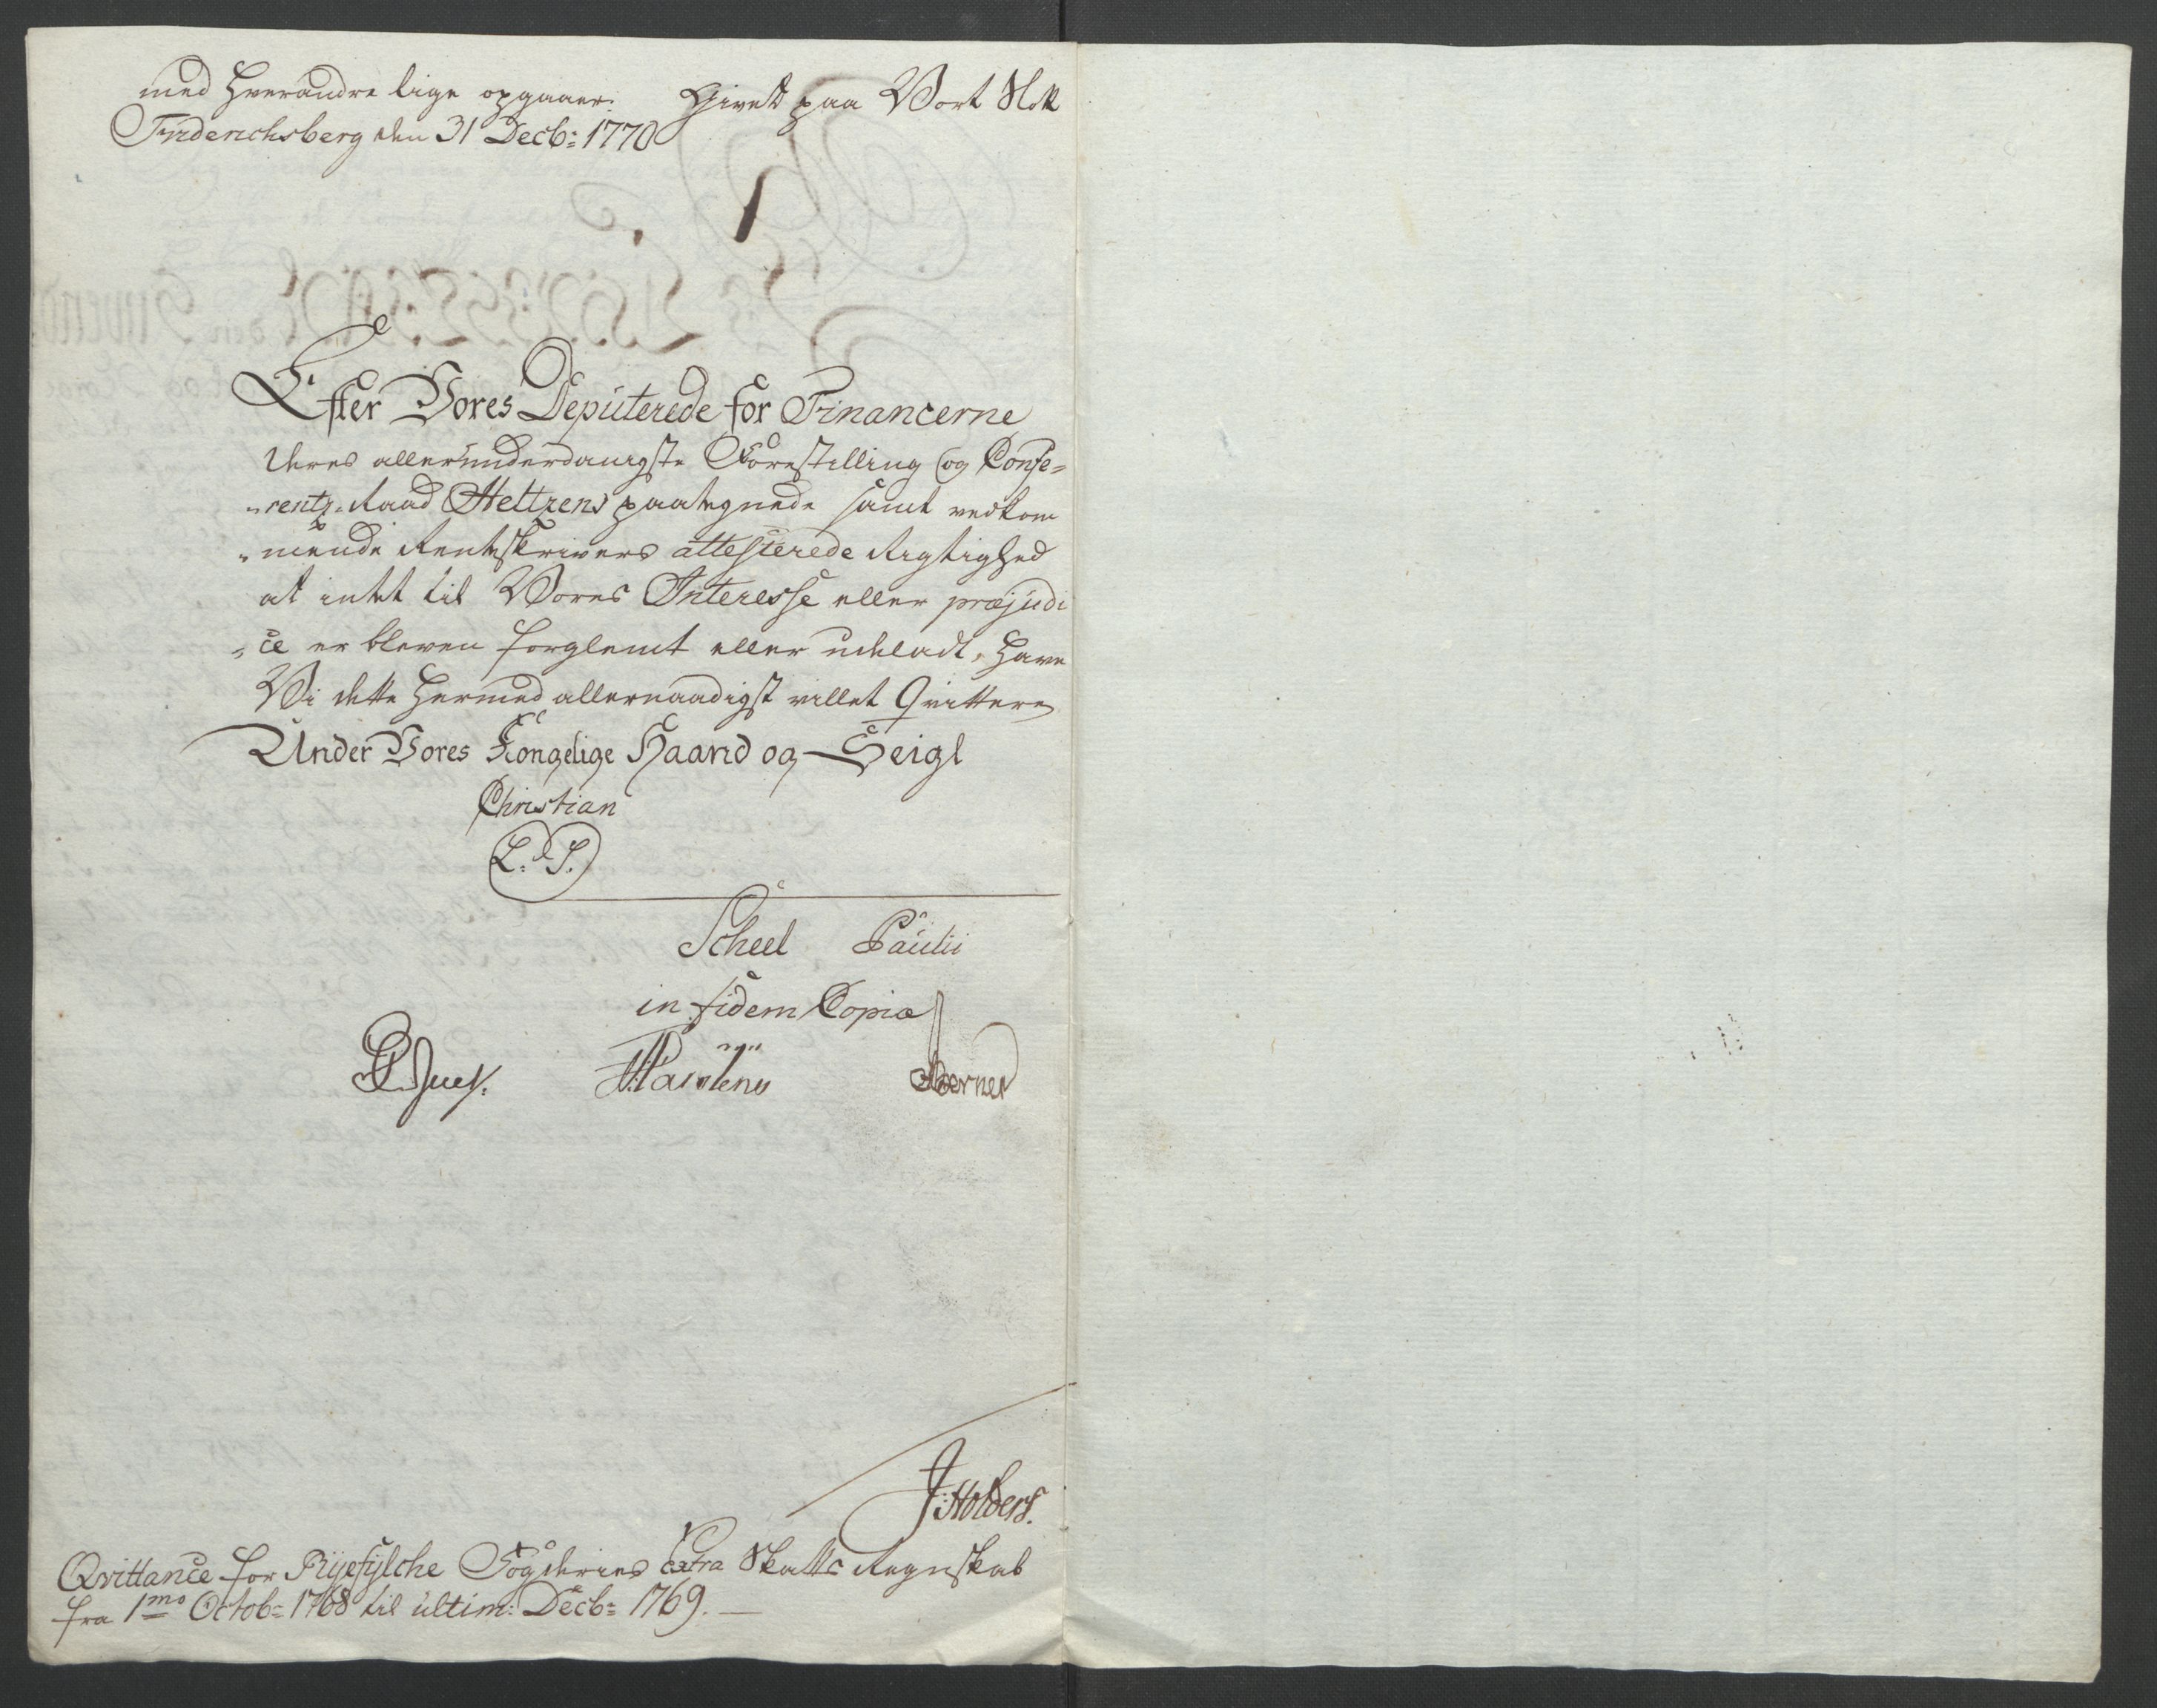 med hverandre lige opgaaer. Givet paa Vort Slott
Friderichsberg den 31 Decb: 1770
Efter Vores Deputerede for Financerne
deres allerunderdanigste Forestilling og Confe-
rentz-Raad Heltzens paategnede samt vedkom
mende Renteskrivers attesterede Rigtighed
at intet til Vores Interesse eller præjudi
ce er bleven forglemt eller udeladt, have
Vi dette hermed allernaadigst villet Qvittere
Under Vores Kongelige Haand og Seigl
Christian
L. S.
Scheel Paulii
in fidem Copiæ
J: Holbers.
Qvittance for Ryefylche Fogderies Extra Skatts Regnskab
fra 1mo Octob: 1768 til ultim: Decb: 1769.